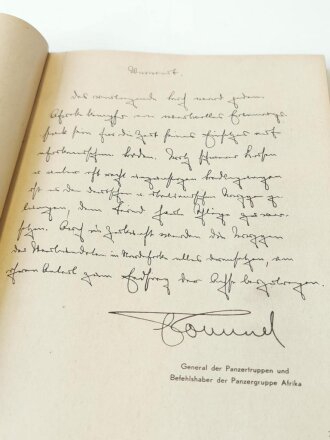 Vorwort.
Das vorliegende Buch wird jedem
Afrikakämpfer ein wertvolles Erinnerungs-
stück sein für die Zeit seines Einsatzes auf
afrikanischem Boden. Trotz schwerer
u. unter oft recht Bedingungen
ist es den deutschen u. italienischen Truppen ge-
lungen, dem Feind harte Schläge zu ver-
setzen. Auch in Zukunft werden die Truppen
in Nordafrika alles daransetzen, um
ihren Anteil zum Endsieg der Achse beizutragen.
Rommel
General der Panzertruppen und
Befehlshaber der Panzergruppe Afrika